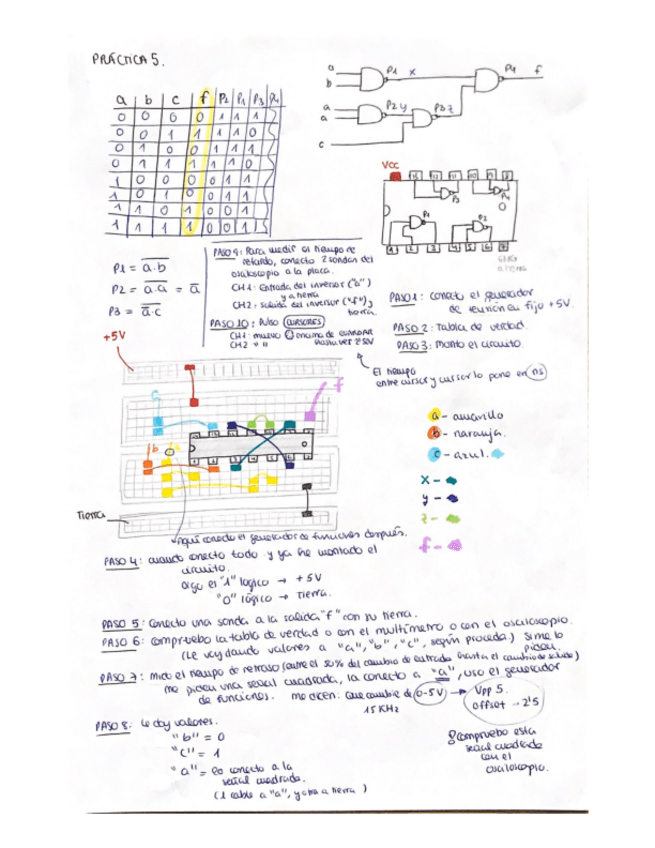 PRÁCTICA 5.
a
b
P1
x
P4
f
a
a
P2
y
P3
z
c
a b c f P2 P1 P3
0 0 0 0 1 1 1
0 0 1 1 1 1 0
0 1 0 0 1 1 1
0 1 1 1 1 1 0
1 0 0 0 0 1 1
1 0 1 0 0 1 1
1 1 0 1 0 0 1
1 1 1 1 0 0 1
VCC
P3
P4
P1
P2
P1 = a.b
P2 = a.a = a
P3 = a.c
PASO 9: Para medir el tiempo de
retardo, conecto 2 sondas del
osciloscopio a la placa.
CH1: Entrada del inversor ("a")
y a tierra
CH2: salida del inversor ("f") y
tierra.
PASO 10: Pulso CURSORES
CH1: muevo encima de
CH2 " " hasta ver 2'50V
PASO 1: conecto el generador
de tensión en fijo +5V.
PASO 2: Tabla de verdad.
PASO 3: Monto el circuito.
El tiempo
entre cursor y cursor lo pone en ns
+5V
f
c
b
a
Tierra
a - amarillo
b - naranja.
c - azul.
x -
y -
z -
f -
Aquí conecto el generador de funciones después.
PASO 4: cuando conecto todo y ya he montado el
circuito.
Digo el "1" lógico → +5V
"0" lógico → Tierra.
PASO 5: Conecto una sonda a la salida "f" con su tierra.
PASO 6: compruebo la tabla de verdad o con el multímetro o con el osciloscopio.
(Le voy dando valores a "a", "b", "c", según proceda.) Si me lo
piden.
PASO 7: Mido el tiempo de retraso (entre el 50% del cambio de entrada hasta el cambio de salida)
me piden una señal cuadrada, la conecto a "a", uso el generador
de funciones. me dicen: que cambie de 0-5V → Vpp 5.
offset → 2'5
15 KHz
PASO 8: Le doy valores.
"b" = 0
"c" = 1
"a" = lo conecto a la
señal cuadrada.
(1 cable a "a", y otro a tierra)
compruebo esta
señal cuadrada
con el
osciloscopio.